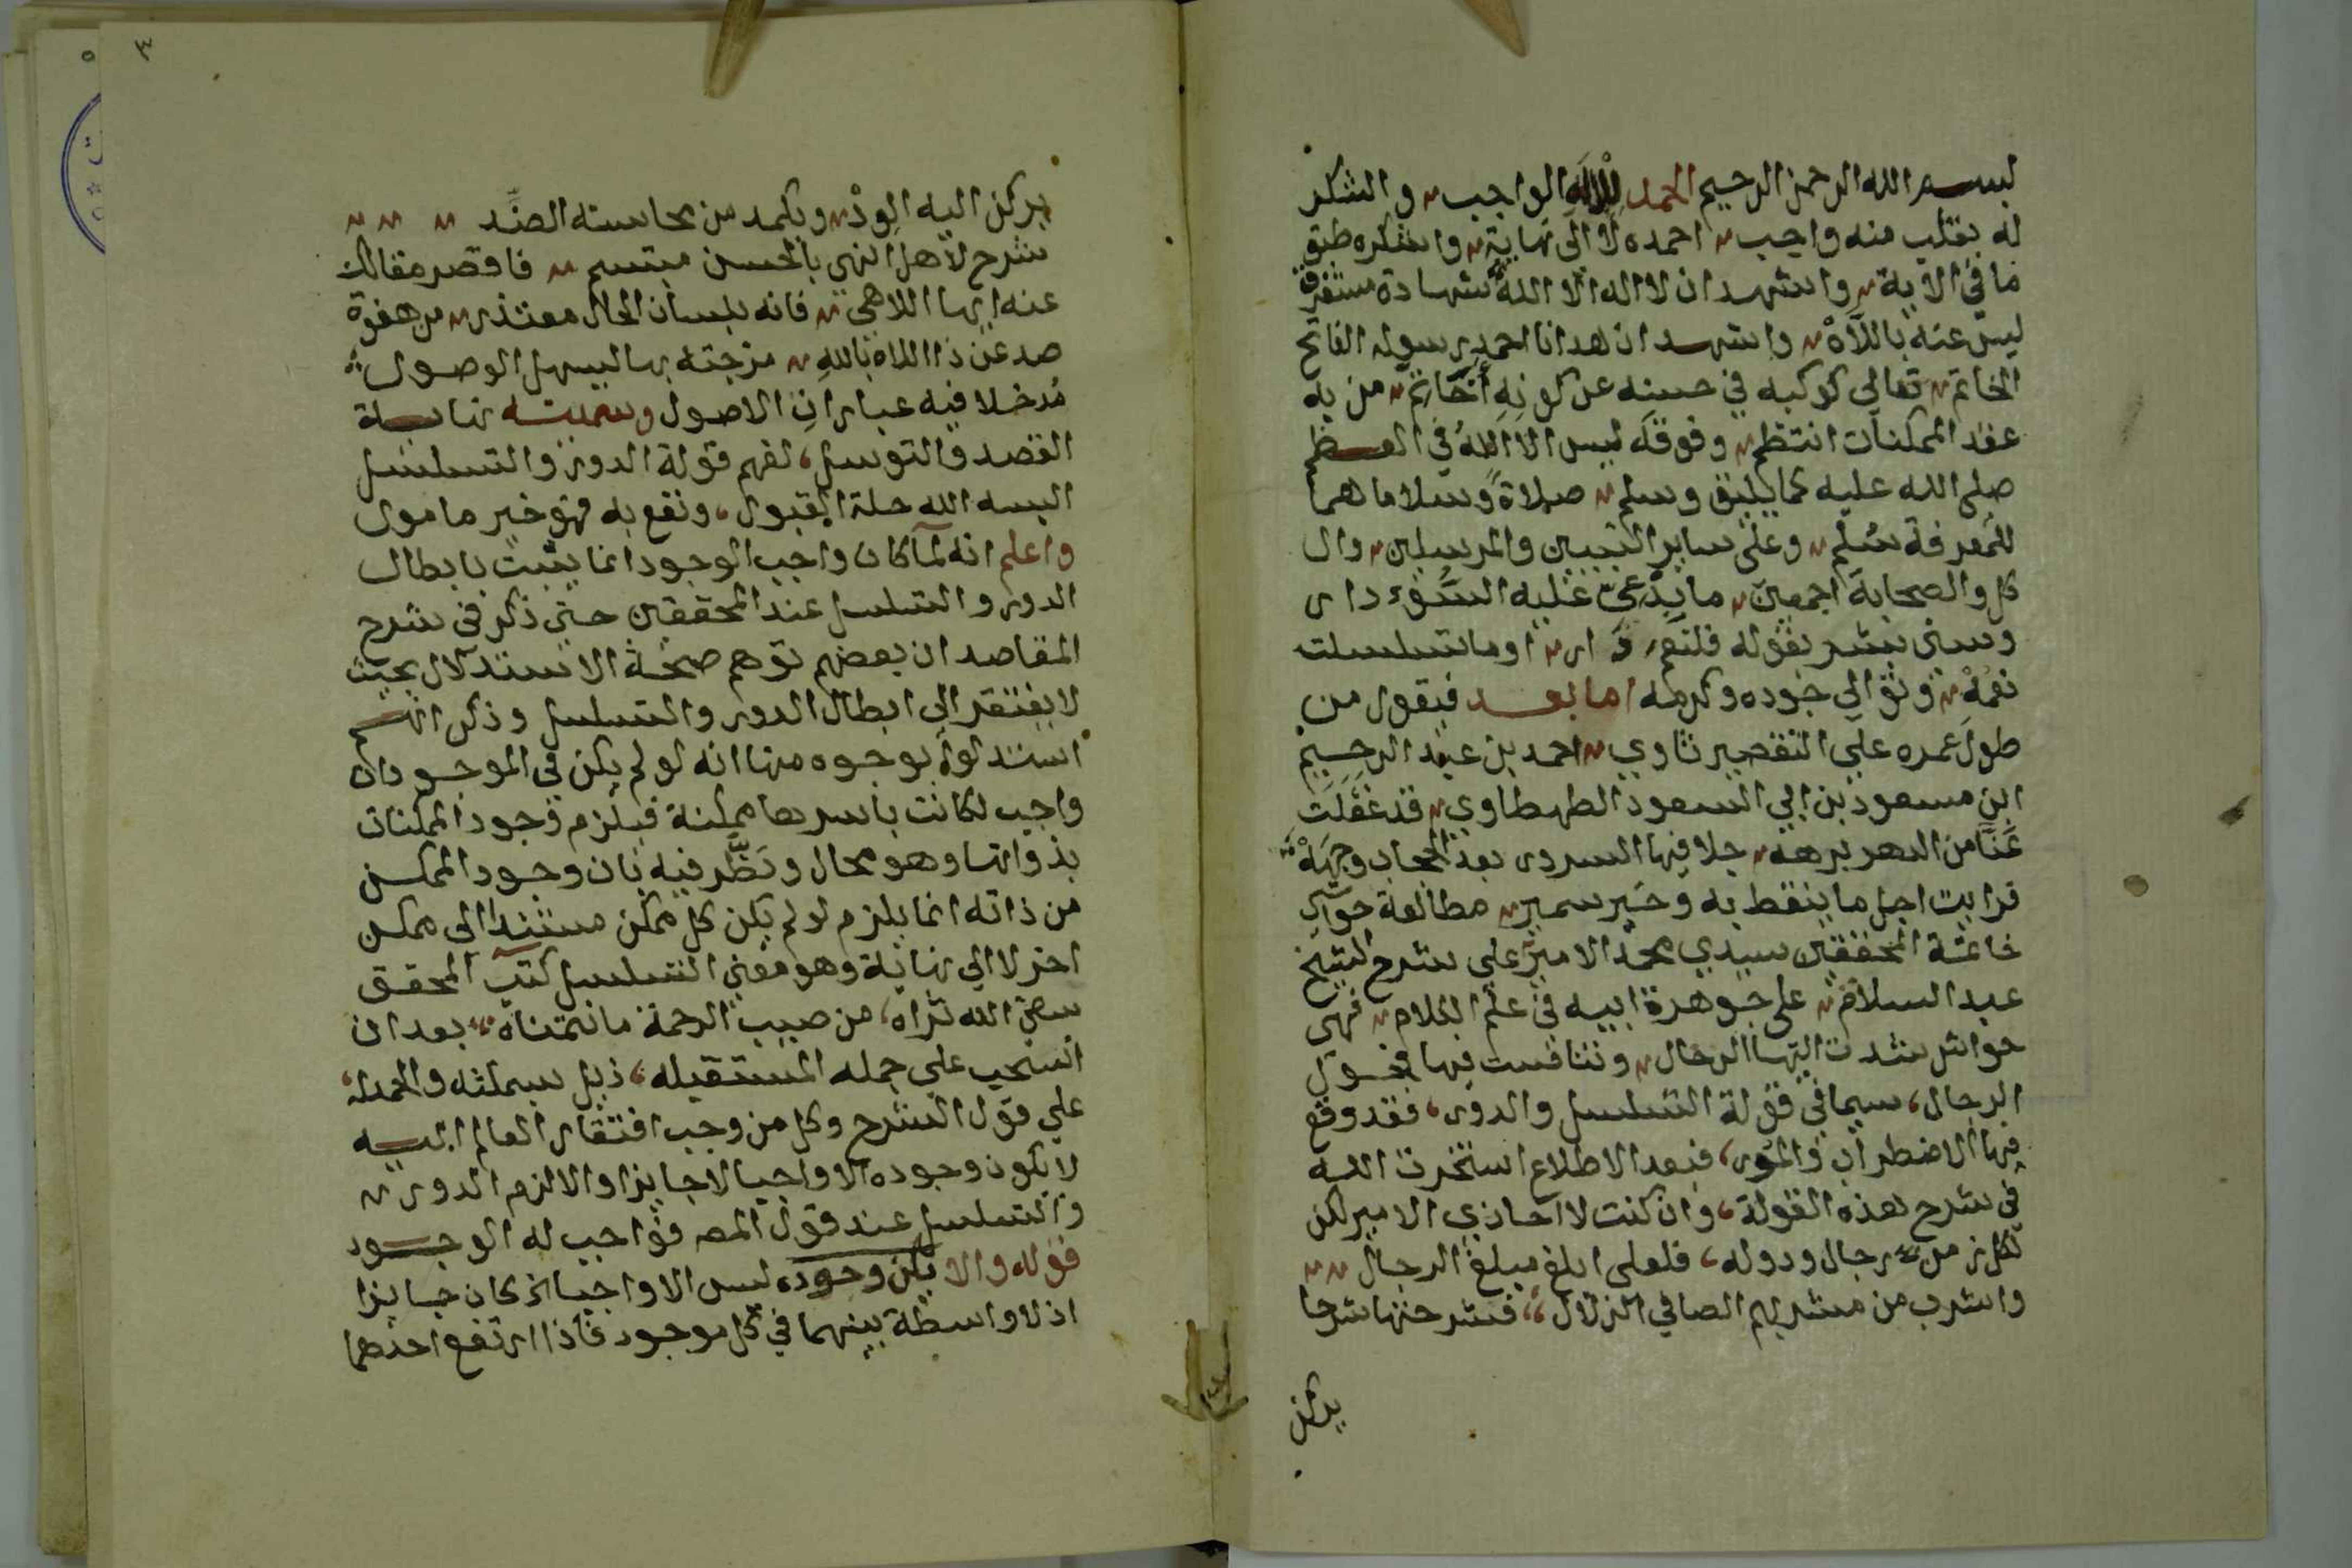 بسم الله الرحمن الرحيم الحمد للاله الواجب والشكر
له بقلب منه واجب احمده لا الى نهاية واشكره طبق
ما في الاية واشهد ان لا اله الا الله شهادة مستغرق
ليس عنه باللاه واشهد ان هدانا احمد رسوله الفاتح
الخاتم تعالى كوكبه في حسنه عن كونه من به
عقد الممكنات انتظم وفوقه ليس الا الله في العظم
صلى الله عليه كما يليق وسلم صلاة وسلاما هما
للمعرفة سلم وعلى ساير النبيين والمرسلين وال
كل والصحابة اجمعين ما يدعى عليه السوء دار
وسنى بشر بقوله فلنعم دار او ما تسلسلت
نعمه وتوالى جوده وكرمه اما بعد فيقول من
طول عمره على التقصير ثاوي احمد بن عبد الرحيم
ابن مسعود بن ابي السعود الطهطاوي قد غفلت
عنا من الدهر برهه جلا فيها السرور بعد الحجاب وجهه
فرايت اجل ما يغتبط به وخير سمير مطالعة حواشي
خاتمة المحققين سيدي محمد الامير على شرح الشيخ
عبد السلام على جوهرة ابيه في علم الكلام فهي
حواش شدت اليها الرحال وتنافست فيها فحول
الرجال، سيما في قولة التسلسل والدور، فقد وقع
فيها الاضطراب والمور، فبعد الاطلاع استخرت الله
في شرح هذه القولة، وان كنت لا احاذي الامير لكن
لكل زمن رجال ودوله، فلعلى ابلغ مبلغ الرجال
واشرب من مشربهم الصافي الزلال، فشرحتها شرحا
يركن
٣
يركن اليه الود ويكمد من محاسنه الضد
شرح لاهل النهى بالحسن مبتسم فاقصر مقالك
عنه ايها اللاهى فانه بلسان الحال معتذر من هفوة
صد عن ذا اللاه بالله مزجته بها ليسهل الوصول
مدخلا فيه عبارات الاصول وسميته نهاية
القصد والتوسل، لفهم قولة الدور والتسلسل
البسه الله حلة القبول، ونفع به فهو خير مامول
واعلم انه لما كان واجب الوجود انما يثبت بابطال
الدور والتسلسل عند المحققين حتى ذكر في شرح
المقاصد ان بعضهم توهم صحة الاستدلال بحيث
لا يفتقر الى ابطال الدور والتسلسل وذكر انهم
استدلوا بوجوه منها انه لو لم يكن في الموجودات
واجب لكانت باسرها ممكنة فيلزم وجود الممكنات
بذواتها وهو محال ونظر فيه بان وجود الممكن
من ذاته انما يلزم لو لم يكن كل ممكن مستندا الى ممكن
اخر لا الى نهاية وهو معنى التسلسل كتب المحقق
سقى الله ثراه، من صيب الرحمة ما تتمناه، بعد ان
انسحب على جمله المستقبله، ذيل بسملته والحمدله،
على قول الشرح وكل من وجب افتقار العالم اليه
لا يكون وجوده الا واجبا لا جايزا والا لزم الدور
والتسلسل عند قول المصـ فواجب له الوجود
قوله والا يكن وجوده ليس الا واجبا بان كان جايزا
اذ لا واسطة بينهما في كل موجود فاذا ارتفع احدهما